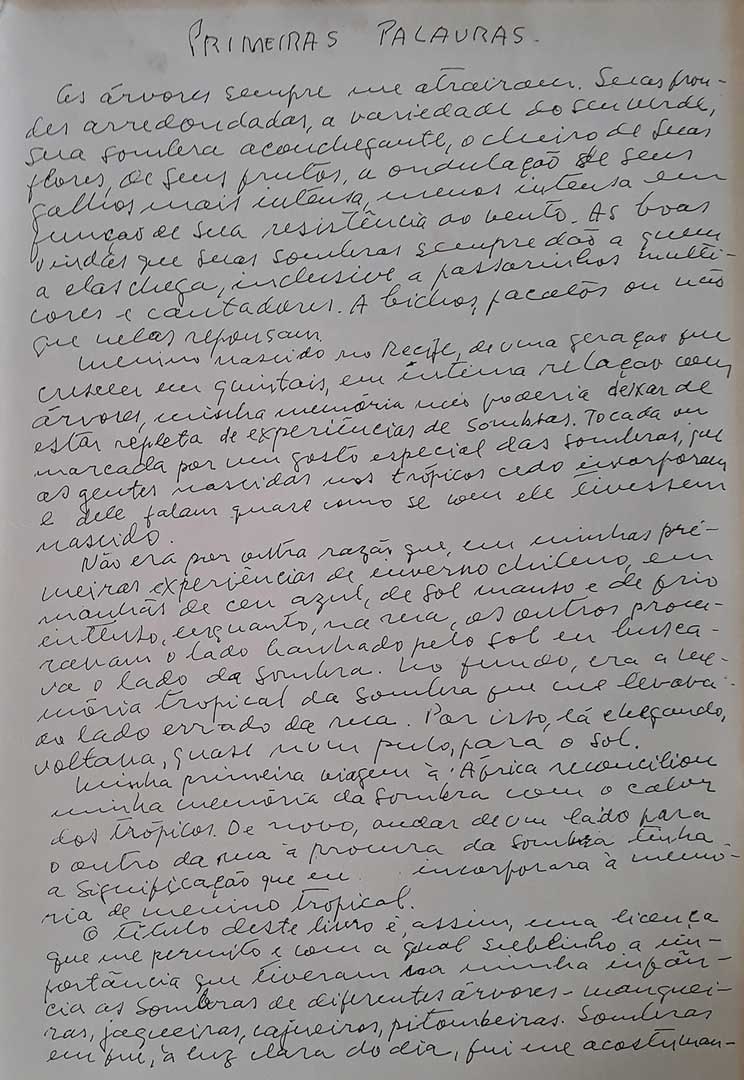 PRIMEIRAS PALAVRAS.
As árvores sempre me atraíram. Suas fron-
des arredondadas, a variedade do seu verde,
sua sombra aconchegante, o cheiro de suas
flores, de seus frutos, a ondulação de seus
galhos mais intensa, menos intensa em
função de sua resistência ao vento. As boas
vindas que suas sombras sempre dão a quem
a elas chega, inclusive a passarinhos multi-
cores e cantadores. A bichos, pacatos ou não
que nelas repousam.
Menino nascido no Recife, de uma geração que
cresceu em quintais, em íntima relação com
árvores, minha memória não poderia deixar de
estar repleta de experiências de sombras. Tocada ou
marcada por um gosto especial das sombras, que
as gentes nascidas nos trópicos cedo incorporam
e dele falam quase como se com ele tivessem
nascido.
Não era por outra razão que, em minhas pri-
meiras experiências de inverno chileno, em
manhãs de ceu azul, de sol manso e de frio
intenso, enquanto, na rua, os outros procu-
ravam o lado banhado pelo sol eu busca-
va o lado da sombra. No fundo, era a me-
mória tropical da sombra que me levava
ao lado errado da rua. Por isto, lá chegando,
voltava, quase num pulo, para o sol.
Minha primeira viagem à África reconciliou
minha memória da sombra com o calor
dos trópicos. De novo, andar de um lado para
o outro da rua à procura da sombra tinha
a significação que eu incorporara à memó-
ria de menino tropical.
O título deste livro é, assim, uma licença
que me permito e com a qual sublinho a im-
portância que tiveram na minha infân-
cia as sombras de diferentes árvores - manguei-
ras, jaqueiras, cajueiros, pitombeiras. Sombras
em que, à luz clara do dia, fui me acostuman-